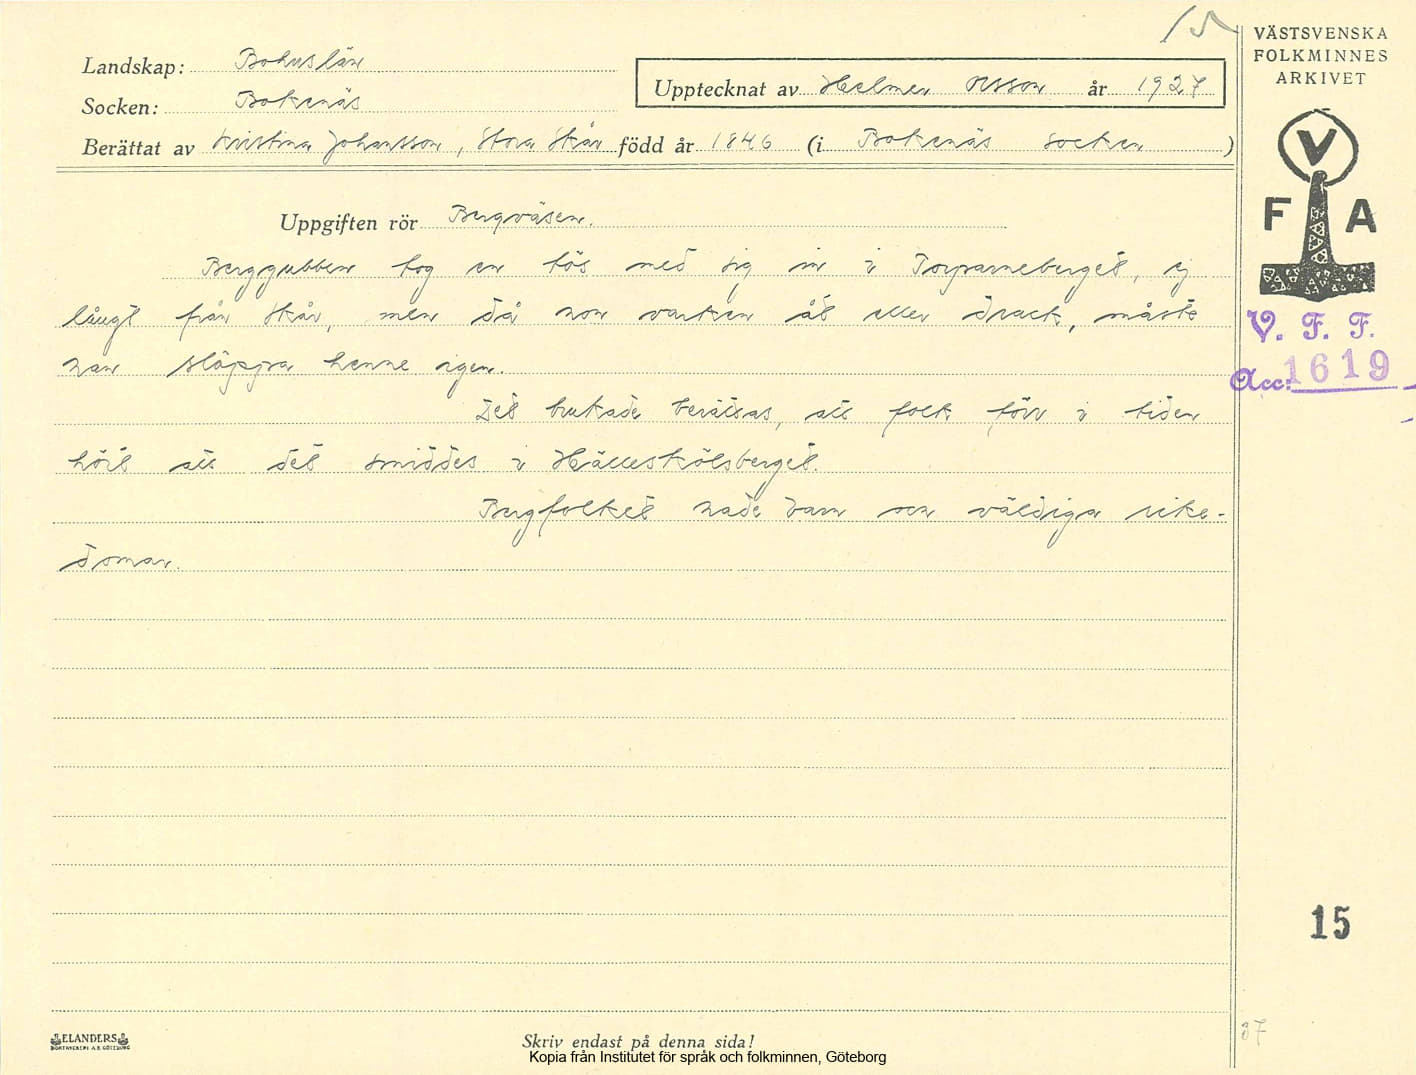 15
VÄSTSVENSKA
FOLKMINNES
ARKIVET
Landskap: Bohuslän
Upptecknat av Helmer Olsson år 1927
Socken: Bokenäs
Berättat av Kristina Johansson, Stora Skår född år 1846 (i Bokenäs socken )
V
F A
Uppgiften rör Bergväsen.
Berggubben tog en tös med sig in i Torparneberget, ej
långt från Skår, men då hon varken åt eller drack, måste
han släppa henne igen.
Det brukade berättas, att folk förr i tiden
hört att det smiddes i Hälleskölsberget.
Bergfolket hade barn och väldiga rike-
domar.
V. F. F.
Acc: 1619
15
87
ELANDERS
BOKTRYCKERI A.B. GÖTEBORG
Skriv endast på denna sida!
Kopia från Institutet för språk och folkminnen, Göteborg